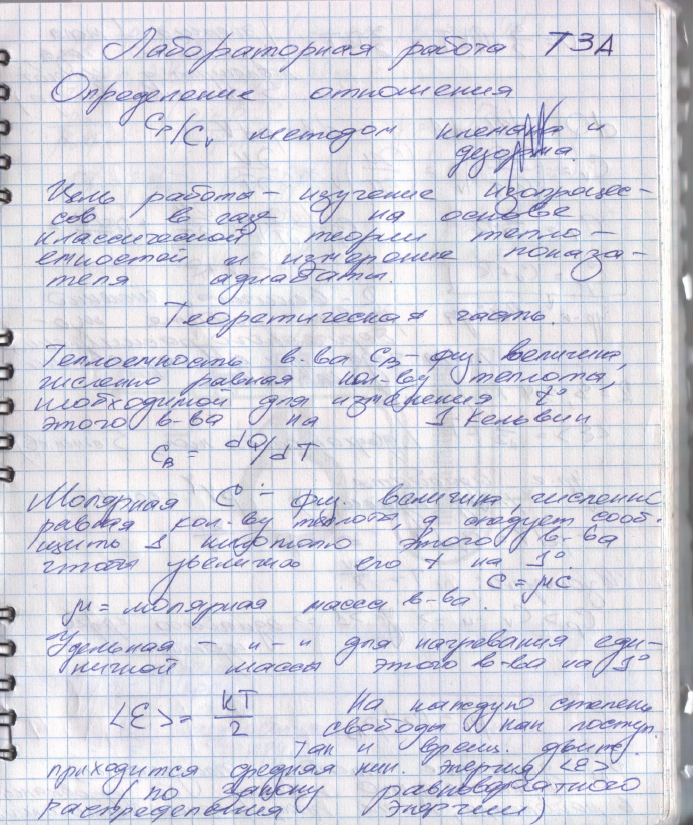 Лабораторная работа T3A
Определение отношения
Cp/Cv методом клемана и
дезорма.
Цель работа – изучение изопроцес-
сов в газе на основе
классической теории тепло-
емкостей и измерение показа-
теля адиабаты.
Теоретическая часть.
Теплоемкость в-ва Cв – физ. величина,
численно равная кол-ву теплоты,
необходимой для изменения t°
этого в-ва на 1 Кельвин
Cв = dQ/dT
Молярная C – физ. величина, численно
равная кол-ву теплота, следует сооб-
щить 1 этого в-ва
чтобы увеличить его t на 1°
C = μc
μ = молярная масса в-ва.
Удельная – и – и для нагревания еди-
ничной массы этого в-ва на 1°
<ε> = KT/2 На каждую степень
свободы как поступ.
так и вращ. движ.
приходится средняя кин. энергия <ε>
(по закону равновероятного
распределения энергии)